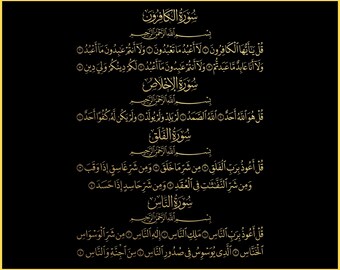 سُورَةُ الكَافِرُون
بِسْمِ اللَّهِ الرَّحْمَٰنِ الرَّحِيمِ
قُلْ يَا أَيُّهَا الْكَافِرُونَ ۝ لَا أَعْبُدُ مَا تَعْبُدُونَ ۝ وَلَا أَنْتُمْ عَابِدُونَ مَا أَعْبُدُ ۝
وَلَا أَنَا عَابِدٌ مَا عَبَدْتُمْ ۝ وَلَا أَنْتُمْ عَابِدُونَ مَا أَعْبُدُ ۝ لَكُمْ دِينُكُمْ وَلِيَ دِينِ ۝
سُورَةُ الإِخْلَاصِ
بِسْمِ اللَّهِ الرَّحْمَٰنِ الرَّحِيمِ
قُلْ هُوَ اللَّهُ أَحَدٌ ۝ اللَّهُ الصَّمَدُ ۝ لَمْ يَلِدْ وَلَمْ يُولَدْ ۝ وَلَمْ يَكُنْ لَهُ كُفُوًا أَحَدٌ ۝
سُورَةُ الفَلَقِ
بِسْمِ اللَّهِ الرَّحْمَٰنِ الرَّحِيمِ
قُلْ أَعُوذُ بِرَبِّ الْفَلَقِ ۝ مِنْ شَرِّ مَا خَلَقَ ۝ وَمِنْ شَرِّ غَاسِقٍ إِذَا وَقَبَ ۝
وَمِنْ شَرِّ النَّفَّاثَاتِ فِي الْعُقَدِ ۝ وَمِنْ شَرِّ حَاسِدٍ إِذَا حَسَدَ ۝
سُورَةُ النَّاسِ
بِسْمِ اللَّهِ الرَّحْمَٰنِ الرَّحِيمِ
قُلْ أَعُوذُ بِرَبِّ النَّاسِ ۝ مَلِكِ النَّاسِ ۝ إِلَٰهِ النَّاسِ ۝ مِنْ شَرِّ الْوَسْوَاسِ
الْخَنَّاسِ ۝ الَّذِي يُوَسْوِسُ فِي صُدُورِ النَّاسِ ۝ مِنَ الْجِنَّةِ وَالنَّاسِ ۝